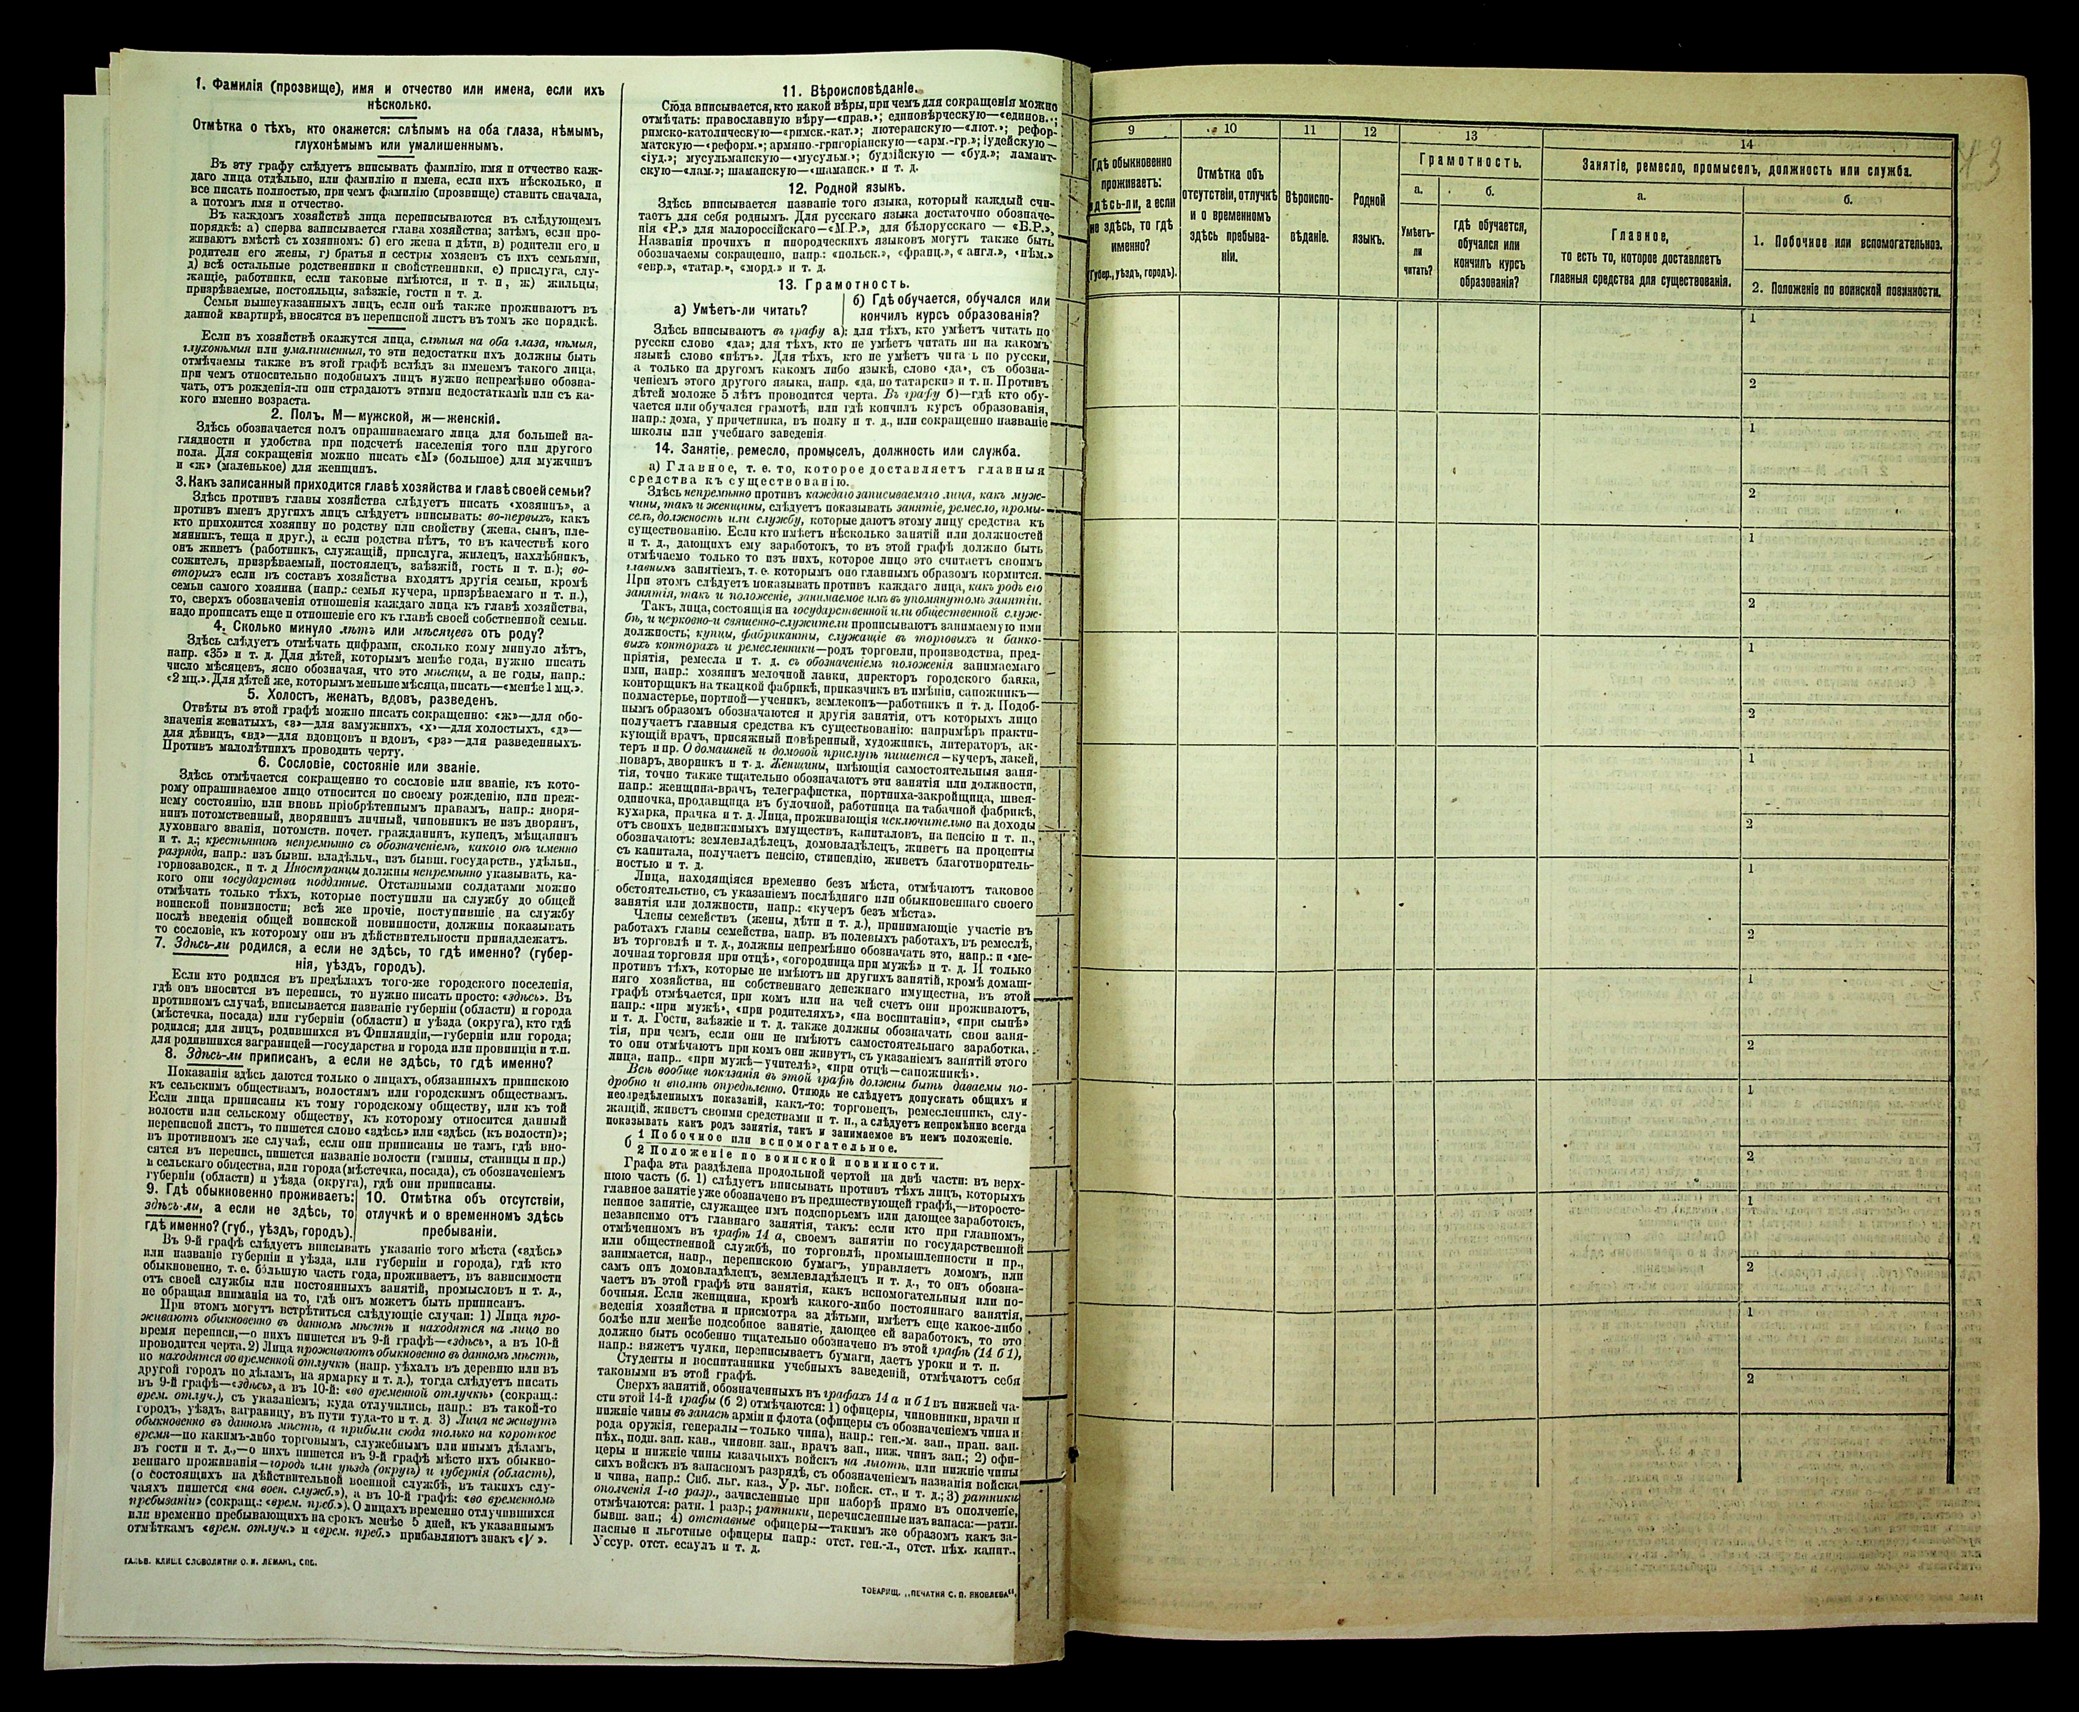 1. Фамилія (прозвище), имя и отчество или имена, если ихъ
нѣсколько.
Отмѣтка о тѣхъ, кто окажется: слѣпымъ на оба глаза, нѣмымъ,
глухонѣмымъ или умалишеннымъ.
Въ эту графу слѣдуетъ вписывать фамилію, имя и отчество каж-
даго лица отдѣльно, или фамилію и имена, если ихъ нѣсколько, и
все писать полностью, при чемъ фамилію (прозвище) ставить сначала,
а потомъ имя и отчество.
Въ каждомъ хозяйствѣ лица переписываются въ слѣдующемъ
порядкѣ: а) сперва записывается глава хозяйства; затѣмъ, если про-
живаютъ вмѣстѣ съ хозяиномъ: б) его жена и дѣти, в) родители его и
родители его жены, г) братья и сестры хозяевъ съ ихъ семьями,
д) всѣ остальные родственники и свойственники, е) прислуга, слу-
жащіе, работники, если таковые имѣются, и т. п., ж) жильцы,
призрѣваемые, постояльцы, заѣзжіе, гости и т. д.
Семьи вышеуказанныхъ лицъ, если онѣ также проживаютъ въ
данной квартирѣ, вносятся въ переписной листъ въ томъ же порядкѣ.
Если въ хозяйствѣ окажутся лица, слѣпыя на оба глаза, нѣмыя,
глухонѣмыя или умалишенныя, то эти недостатки ихъ должны быть
отмѣчаемы также въ этой графѣ вслѣдъ за именемъ такого лица,
при чемъ относительно подобныхъ лицъ нужно непремѣнно обозна-
чать, отъ рожденія-ли они страдаютъ этими недостатками или съ ка-
кого именно возраста.
2. Полъ. М—мужской, ж—женскій.
Здѣсь обозначается полъ опрашиваемаго лица для большей на-
глядности и удобства при подсчетѣ населенія того или другого
пола. Для сокращенія можно писать «М» (большое) для мужчинъ
и «ж» (маленькое) для женщинъ.
3. Какъ записанный приходится главѣ хозяйства и главѣ своей семьи?
Здѣсь противъ главы хозяйства слѣдуетъ писать «хозяинъ», а
противъ именъ другихъ лицъ слѣдуетъ вписывать: во-первыхъ, какъ
кто приходится хозяину по родству или свойству (жена, сынъ, пле-
мянникъ, теща и друг.), а если родства нѣтъ, то въ качествѣ кого
онъ живетъ (работникъ, служащій, прислуга, жилецъ, нахлѣбникъ,
сожитель, призрѣваемый, постоялецъ, заѣзжій, гость и т. п.); во-
вторыхъ если въ составъ хозяйства входятъ другія семьи, кромѣ
семьи самого хозяина (напр.: семья кучера, призрѣваемаго и т. п.),
то, сверхъ обозначенія отношенія каждаго лица къ главѣ хозяйства,
надо прописать еще и отношеніе его къ главѣ своей собственной семьи.
4. Сколько минуло лѣтъ или мѣсяцевъ отъ роду?
Здѣсь слѣдуетъ отмѣчать цифрами, сколько кому минуло лѣтъ,
напр. «35» и т. д. Для дѣтей, которымъ менѣе года, нужно писать
число мѣсяцевъ, ясно обозначая, что это мѣсяцы, а не годы, напр.:
«2 мц.». Для дѣтей же, которымъ меньше мѣсяца, писать—«менѣе 1 мц.».
5. Холостъ, женатъ, вдовъ, разведенъ.
Отвѣты въ этой графѣ можно писать сокращенно: «ж»—для обо-
значенія женатыхъ, «з»—для замужнихъ, «х»—для холостыхъ, «д»—
для дѣвицъ, «вд»—для вдовцовъ и вдовъ, «рз»—для разведенныхъ.
Противъ малолѣтнихъ проводить черту.
6. Сословіе, состояніе или званіе.
Здѣсь отмѣчается сокращенно то сословіе или званіе, къ кото-
рому опрашиваемое лицо относится по своему рожденію, или преж-
нему состоянію, или вновь пріобрѣтеннымъ правамъ, напр.: дворя-
нинъ потомственный, дворянинъ личный, чиновникъ не изъ дворянъ,
духовнаго званія, потомств. почет. гражданинъ, купецъ, мѣщанинъ
и т. д.; крестьянинъ непремѣнно съ обозначеніемъ, какого онъ именно
разряда, напр.: изъ бывш. владѣльч., изъ бывш. государств., удѣльн.,
горнозаводск., и т. д Иностранцы должны непремѣнно указывать, ка-
кого они государства подданные. Отставными солдатами можно
отмѣчать только тѣхъ, которые поступили на службу до общей
воинской повинности; всѣ же прочіе, поступившіе на службу
послѣ введенія общей воинской повинности, должны показывать
то сословіе, къ которому они въ дѣйствительности принадлежатъ.
7. Здѣсь-ли родился, а если не здѣсь, то гдѣ именно? (губер-
нія, уѣздъ, городъ).
Если кто родился въ предѣлахъ того-же городского поселенія,
гдѣ онъ вносится въ перепись, то нужно писать просто: «здѣсь». Въ
противномъ случаѣ, вписывается названіе губерніи (области) и города
(мѣстечка, посада) или губерніи (области) и уѣзда (округа), кто гдѣ
родился; для лицъ, родившихся въ Финляндіи,—губерніи или города;
для родившихся заграницей—государства и города или провинціи и т.п.
8. Здѣсь-ли приписанъ, а если не здѣсь, то гдѣ именно?
Показанія здѣсь даются только о лицахъ, обязанныхъ припискою
къ сельскимъ обществамъ, волостямъ или городскимъ обществамъ.
Если лица приписаны къ тому городскому обществу, или къ той
волости или сельскому обществу, къ которому относится данный
переписной листъ, то пишется слово «здѣсь» или «здѣсь (къ волости)»;
въ противномъ же случаѣ, если они приписаны не тамъ, гдѣ вно-
сятся въ перепись, пишется названіе волости (гмины, станицы и пр.)
и сельскаго общества, или города (мѣстечка, посада), съ обозначеніемъ
губерніи (области) и уѣзда (округа), гдѣ они приписаны.
9. Гдѣ обыкновенно проживаетъ:
здѣсь-ли, а если не здѣсь, то
гдѣ именно? (губ., уѣздъ, городъ).
10. Отмѣтка объ отсутствіи,
отлучкѣ и о временномъ здѣсь
пребываніи.
Въ 9-й графѣ слѣдуетъ вписывать указаніе того мѣста («здѣсь»
или названіе губерніи и уѣзда, или губерніи и города), гдѣ кто
обыкновенно, т. е. бо́льшую часть года, проживаетъ, въ зависимости
отъ своей службы или постоянныхъ занятій, промысловъ и т. д.,
не обращая вниманія на то, гдѣ онъ можетъ быть приписанъ.
При этомъ могутъ встрѣтиться слѣдующіе случаи: 1) Лица про-
живаютъ обыкновенно въ данномъ мѣстѣ и находятся на лицо во
время переписи,—о нихъ пишется въ 9-й графѣ—«здѣсь», а въ 10-й
проводится черта. 2) Лица проживаютъ обыкновенно въ данномъ мѣстѣ,
но находятся во временной отлучкѣ (напр. уѣхалъ въ деревню или въ
другой городъ по дѣламъ, на ярмарку и т. д.), тогда слѣдуетъ писать
въ 9-й графѣ—«здѣсь», а въ 10-й: «во временной отлучкѣ» (сокращ.:
врем. отлуч.), съ указаніемъ; куда отлучились, напр.: въ такой-то
городъ, уѣздъ, заграницу, въ пути туда-то и т. д. 3) Лица не живутъ
обыкновенно въ данномъ мѣстѣ, а прибыли сюда только на короткое
время—по какимъ-либо торговымъ, служебнымъ или инымъ дѣламъ,
въ гости и т. д.,—о нихъ пишется въ 9-й графѣ мѣсто ихъ обыкно-
веннаго проживанія—городъ или уѣздъ (округъ) и губернія (область),
(о состоящихъ на дѣйствительной военной службѣ, въ такихъ слу-
чаяхъ пишется «на воен. служб.»), а въ 10-й графѣ: «во временномъ
пребываніи» (сокращ.: «врем. преб.»). О лицахъ временно отлучившихся
или временно пребывающихъ на срокъ менѣе 5 дней, къ указаннымъ
отмѣткамъ «врем. отлуч.» и «врем. преб.» прибавляютъ знакъ «V».
ГАЛЬВ. КЛИШЕ СЛОВОЛИТНИ О. И. ЛЕМАНЪ, СПБ.
11. Вѣроисповѣданіе.
Сюда вписывается, кто какой вѣры, при чемъ для сокращенія можно
отмѣчать: православную вѣру—«прав.»; единовѣрческую—«единов.»;
римско-католическую—«римск.-кат.»; лютеранскую—«лют.»; рефор-
матскую—«реформ.»; армяно-григоріанскую—«арм.-гр.»; іудейскую—
«іуд.»; мусульманскую—«мусульм.»; буддійскую — «буд.»; ламаит-
скую—«лам.»; шаманскую—«шаманск.» и т. д.
12. Родной языкъ.
Здѣсь вписывается названіе того языка, который каждый счи-
таетъ для себя роднымъ. Для русскаго языка достаточно обозначе-
нія «Р.» для малороссійскаго—«М.Р.», для бѣлорусскаго — «Б.Р.»,
Названія прочихъ и инородческихъ языковъ могутъ также быть
обозначаемы сокращенно, напр.: «польск.», «франц.», «англ.», «нѣм.»
«евр.», «татар.», «морд.» и т. д.
13. Грамотность.
а) Умѣетъ-ли читать?
б) Гдѣ обучается, обучался или
кончилъ курсъ образованія?
Здѣсь вписываютъ въ графу а): для тѣхъ, кто умѣетъ читать по
русски слово «да»; для тѣхъ, кто не умѣетъ читать ни на какомъ
языкѣ слово «нѣтъ». Для тѣхъ, кто не умѣетъ читать по русски,
а только на другомъ какомъ либо языкѣ, слово «да», съ обозна-
ченіемъ этого другого языка, напр. «да, по татарски» и т. п. Противъ
дѣтей моложе 5 лѣтъ проводится черта. Въ графу б)—гдѣ кто обу-
чается или обучался грамотѣ, или гдѣ кончилъ курсъ образованія,
напр.: дома, у причетника, въ полку и т. д., или сокращенно названіе
школы или учебнаго заведенія.
14. Занятіе, ремесло, промыселъ, должность или служба.
а) Главное, т. е. то, которое доставляетъ главныя
средства къ существованію.
Здѣсь непремѣнно противъ каждаго записываемаго лица, какъ муж-
чины, такъ и женщины, слѣдуетъ показывать занятіе, ремесло, промы-
селъ, должность или службу, которые даютъ этому лицу средства къ
существованію. Если кто имѣетъ нѣсколько занятій или должностей
и т. д., дающихъ ему заработокъ, то въ этой графѣ должно быть
отмѣчаемо только то изъ нихъ, которое лицо это считаетъ своимъ
главнымъ занятіемъ, т. е. которымъ оно главнымъ образомъ кормится.
При этомъ слѣдуетъ показывать противъ каждаго лица, какъ родъ его
занятія, такъ и положеніе, занимаемое имъ въ упомянутомъ занятіи.
Такъ, лица, состоящія на государственной или общественной служ-
бѣ, и церковно-и священно-служители прописываютъ занимаемую ими
должность; купцы, фабриканты, служащіе въ торговыхъ и банко-
выхъ конторахъ и ремесленники—родъ торговли, производства, пред-
пріятія, ремесла и т. д. съ обозначеніемъ положенія занимаемаго
ими, напр.: хозяинъ мелочной лавки, директоръ городского банка,
конторщикъ на ткацкой фабрикѣ, приказчикъ въ имѣніи, сапожникъ—
подмастерье, портной—ученикъ, землекопъ—работникъ и т. д. Подоб-
нымъ образомъ обозначаются и другія занятія, отъ которыхъ лицо
получаетъ главныя средства къ существованію: напримѣръ практи-
кующій врачъ, присяжный повѣренный, художникъ, литераторъ, ак-
теръ и пр. О домашней и домовой прислугѣ пишется—кучеръ, лакей,
поваръ, дворникъ и т. д. Женщины, имѣющія самостоятельныя заня-
тія, точно также тщательно обозначаютъ эти занятія или должности,
напр.: женщина-врачъ, телеграфистка, портниха-закройщица, швея-
одиночка, продавщица въ булочной, работница на табачной фабрикѣ,
кухарка, прачка и т. д. Лица, проживающія исключительно на доходы
отъ своихъ недвижимыхъ имуществъ, капиталовъ, на пенсію и т. п.,
обозначаютъ: землевладѣлецъ, домовладѣлецъ, живетъ на проценты
съ капитала, получаетъ пенсію, стипендію, живетъ благотворитель-
ностью и т. д.
Лица, находящіяся временно безъ мѣста, отмѣчаютъ таковое
обстоятельство, съ указаніемъ послѣдняго или обыкновеннаго своего
занятія или должности, напр.: «кучеръ безъ мѣста».
Члены семействъ (жены, дѣти и т. д.), принимающіе участіе въ
работахъ главы семейства, напр. въ полевыхъ работахъ, въ ремеслѣ,
въ торговлѣ и т. д., должны непремѣнно обозначать это, напр.: и «ме-
лочная торговля при отцѣ», «огородница при мужѣ» и т. д. И только
противъ тѣхъ, которые не имѣютъ ни другихъ занятій, кромѣ домаш-
няго хозяйства, ни собственнаго денежнаго имущества, въ этой
графѣ отмѣчается, при комъ или на чей счетъ они проживаютъ,
напр.: «при мужѣ», «при родителяхъ», «на воспитаніи», «при сынѣ»
и т. д. Гости, заѣзжіе и т. д. также должны обозначать свои заня-
тія, при чемъ, если они не имѣютъ самостоятельнаго заработка,
то они отмѣчаютъ при комъ они живутъ, съ указаніемъ занятій этого
лица, напр.. «при мужѣ—учителѣ», «при отцѣ—сапожникѣ».
Всѣ вообще показанія въ этой графѣ должны быть даваемы по-
дробно и вполнѣ опредѣленно. Отнюдь не слѣдуетъ допускать общихъ и
неопредѣленныхъ показаній, какъ-то: торговецъ, ремесленникъ, слу-
жащій, живетъ своими средствами и т. п., а слѣдуетъ непремѣнно всегда
показывать какъ родъ занятія, такъ и занимаемое въ немъ положеніе.
б 1 Побочное или вспомогательное.
2 Положеніе по воинской повинности.
Графа эта раздѣлена продольной чертой на двѣ части: въ верх-
нюю часть (б. 1) слѣдуетъ вписывать противъ тѣхъ лицъ, которыхъ
главное занятіе уже обозначено въ предшествующей графѣ,—второсте-
пенное занятіе, служащее имъ подспорьемъ или дающее заработокъ,
независимо отъ главнаго занятія, такъ: если кто при главномъ,
отмѣченномъ въ графѣ 14 а, своемъ занятіи по государственной
или общественной службѣ, по торговлѣ, промышленности и пр.,
занимается, напр., перепискою бумагъ, управляетъ домомъ, или
самъ онъ домовладѣлецъ, землевладѣлецъ и т. д., то онъ обозна-
чаетъ въ этой графѣ эти занятія, какъ вспомогательныя или по-
бочныя. Если женщина, кромѣ какого-либо постояннаго занятія,
веденія хозяйства и присмотра за дѣтьми, имѣетъ еще какое-либо
болѣе или менѣе подсобное занятіе, дающее ей заработокъ, то это
должно быть особенно тщательно обозначено въ этой графѣ (14 б 1),
напр.: вяжетъ чулки, переписываетъ бумаги, даетъ уроки и т. п.
Студенты и воспитанники учебныхъ заведеній, отмѣчаютъ себя
таковыми въ этой графѣ.
Сверхъ занятій, обозначенныхъ въ графахъ 14 а и б 1 въ нижней ча-
сти этой 14-й графы (б 2) отмѣчаются: 1) офицеры, чиновники, врачи и
нижніе чины въ запасѣ арміи и флота (офицеры съ обозначеніемъ чина и
рода оружія, генералы—только чина), напр.: ген.-м. зап., прап. зап.
пѣх., подп. зап. кав., чиновн. зап., врачъ зап., ниж. чинъ зап.; 2) офи-
церы и нижніе чины казачьихъ войскъ на льготѣ, или нижніе чины
сихъ войскъ въ запасномъ разрядѣ, съ обозначеніемъ названія войска
и чина, напр.: Сиб. льг. каз., Ур. льг. войск. ст., и т. д.; 3) ратники
ополченія 1-го разр., зачисленные при наборѣ прямо въ ополченіе,
отмѣчаются: ратн. 1 разр.; ратники, перечисленные изъ запаса:—ратн.
бывш. зап.; 4) отставные офицеры—такимъ же образомъ какъ за-
пасные и льготные офицеры напр.: отст. ген.-л., отст. пѣх. капит.,
Уссур. отст. есаулъ и т. д.
ТОВАРИЩ. „ПЕЧАТНЯ С. П. ЯКОВЛЕВА“.
9
Гдѣ обыкновенно
проживаетъ:
здѣсь-ли, а если
не здѣсь, то гдѣ
именно?
(Губер., уѣздъ, городъ).
10
Отмѣтка объ
отсутствіи, отлучкѣ
и о временномъ
здѣсь пребыва-
ніи.
11
Вѣроиспо-
вѣданіе.
12
Родной
языкъ.
13
Грамотность.
а.
Умѣетъ-
ли
читать?
б.
гдѣ обучается,
обучался или
кончилъ курсъ
образованія?
14
Занятіе, ремесло, промыселъ, должность или служба.
а.
Главное,
то есть то, которое доставляетъ
главныя средства для существованія.
б.
1. Побочное или вспомогательное.
2. Положеніе по воинской повинности.
1
2
1
2
1
2
1
2
1
2
1
2
1
2
1
2
1
2
1
2